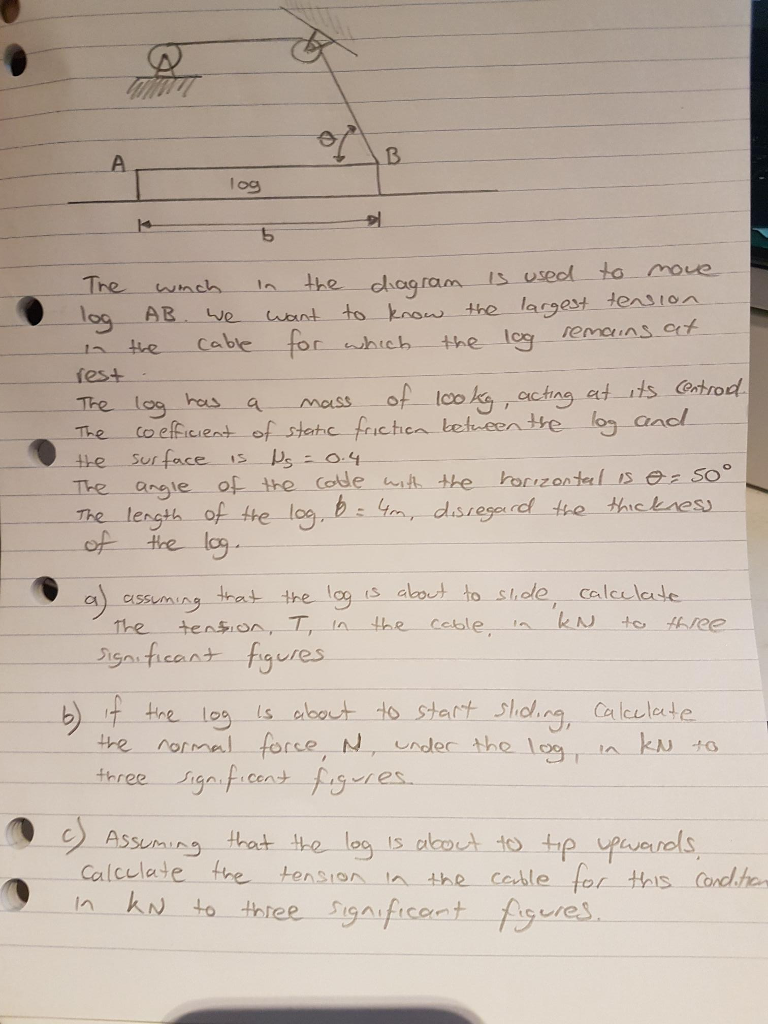 A
θ
B
log
b
The winch in the diagram is used to move
log AB. We want to know the largest tension
in the cable for which the log remains at
rest.
The log has a mass of 100kg, acting at its centroid.
The coefficient of static friction between the log and
the surface is μs = 0.4
The angle of the cable with the horizontal is θ = 50°
The length of the log, b = 4m, disregard the thickness
of the log.
a) assuming that the log is about to slide, calculate
the tension, T, in the cable, in kN to three
significant figures
b) if the log is about to start sliding, calculate
the normal force, N, under the log, in kN to
three significant figures.
c) Assuming that the log is about to tip upwards.
Calculate the tension in the cable for this condition
in kN to three significant figures.